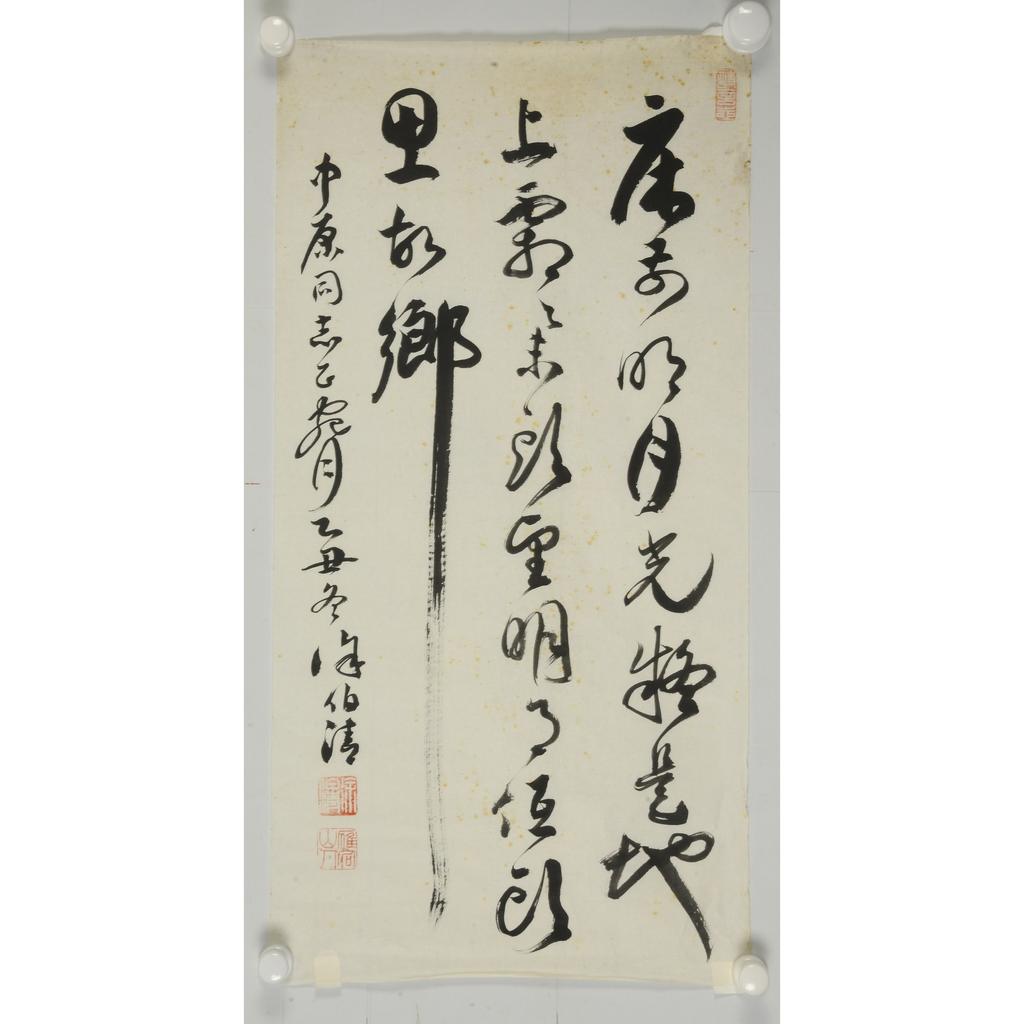 床前明月光疑是地
上霜舉頭望明月低頭
思故鄉
中原同志正腕乙丑冬徐伯清